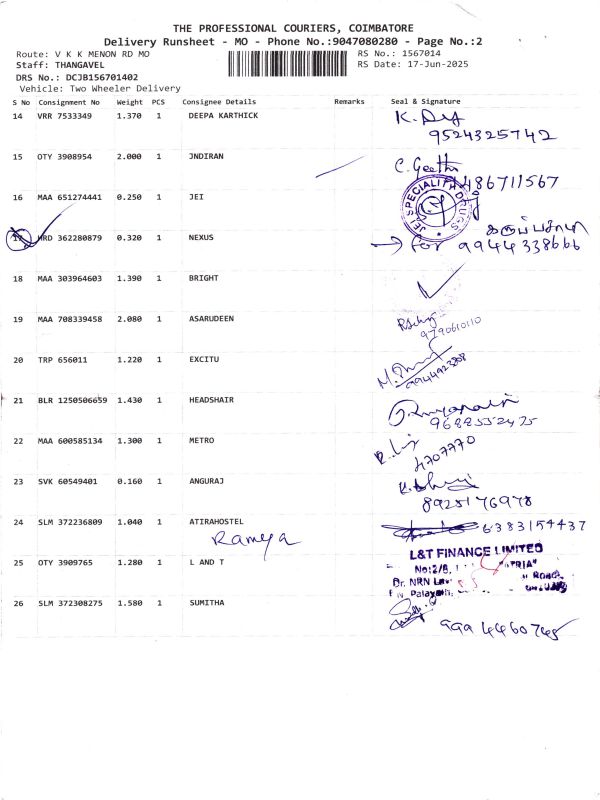 THE PROFESSIONAL COURIERS, COIMBATORE
Delivery Runsheet - MO - Phone No.:9047080280 - Page No.:2
Route: V K K MENON RD MO
RS No.: 1567014
Staff: THANGAVEL
RS Date: 17-Jun-2025
DRS No.: DCJB156701402
Vehicle: Two Wheeler Delivery
S No Consignment No Weight PCS Consignee Details Remarks Seal & Signature
14 VRR 7533349 1.370 1 DEEPA KARTHICK
9524325742
15 OTY 3908954 2.000 1 JNDIRAN C. Geetha
486711567
16 MAA 651274441 0.250 1 JEI
JEI SPECIALITY DRUGS
HRD 362280879 0.320 1 NEXUS
for 9944338666
18 MAA 303964603 1.390 1 BRIGHT
19 MAA 708339458 2.080 1 ASARUDEEN
9790610110
20 TRP 656011 1.220 1 EXCITU
21 BLR 1250506659 1.430 1 HEADSHAIR
22 MAA 600585134 1.300 1 METRO
4707770
23 SVK 60549401 0.160 1 ANGURAJ
8925176978
24 SLM 372236809 1.040 1 ATIRAHOSTEL 6383154437
Ramya
25 OTY 3909765 1.280 1 L AND T
L&T FINANCE LIMITED
No:2/8,
Dr. NRN
26 SLM 372308275 1.580 1 SUMITHA
9994460745